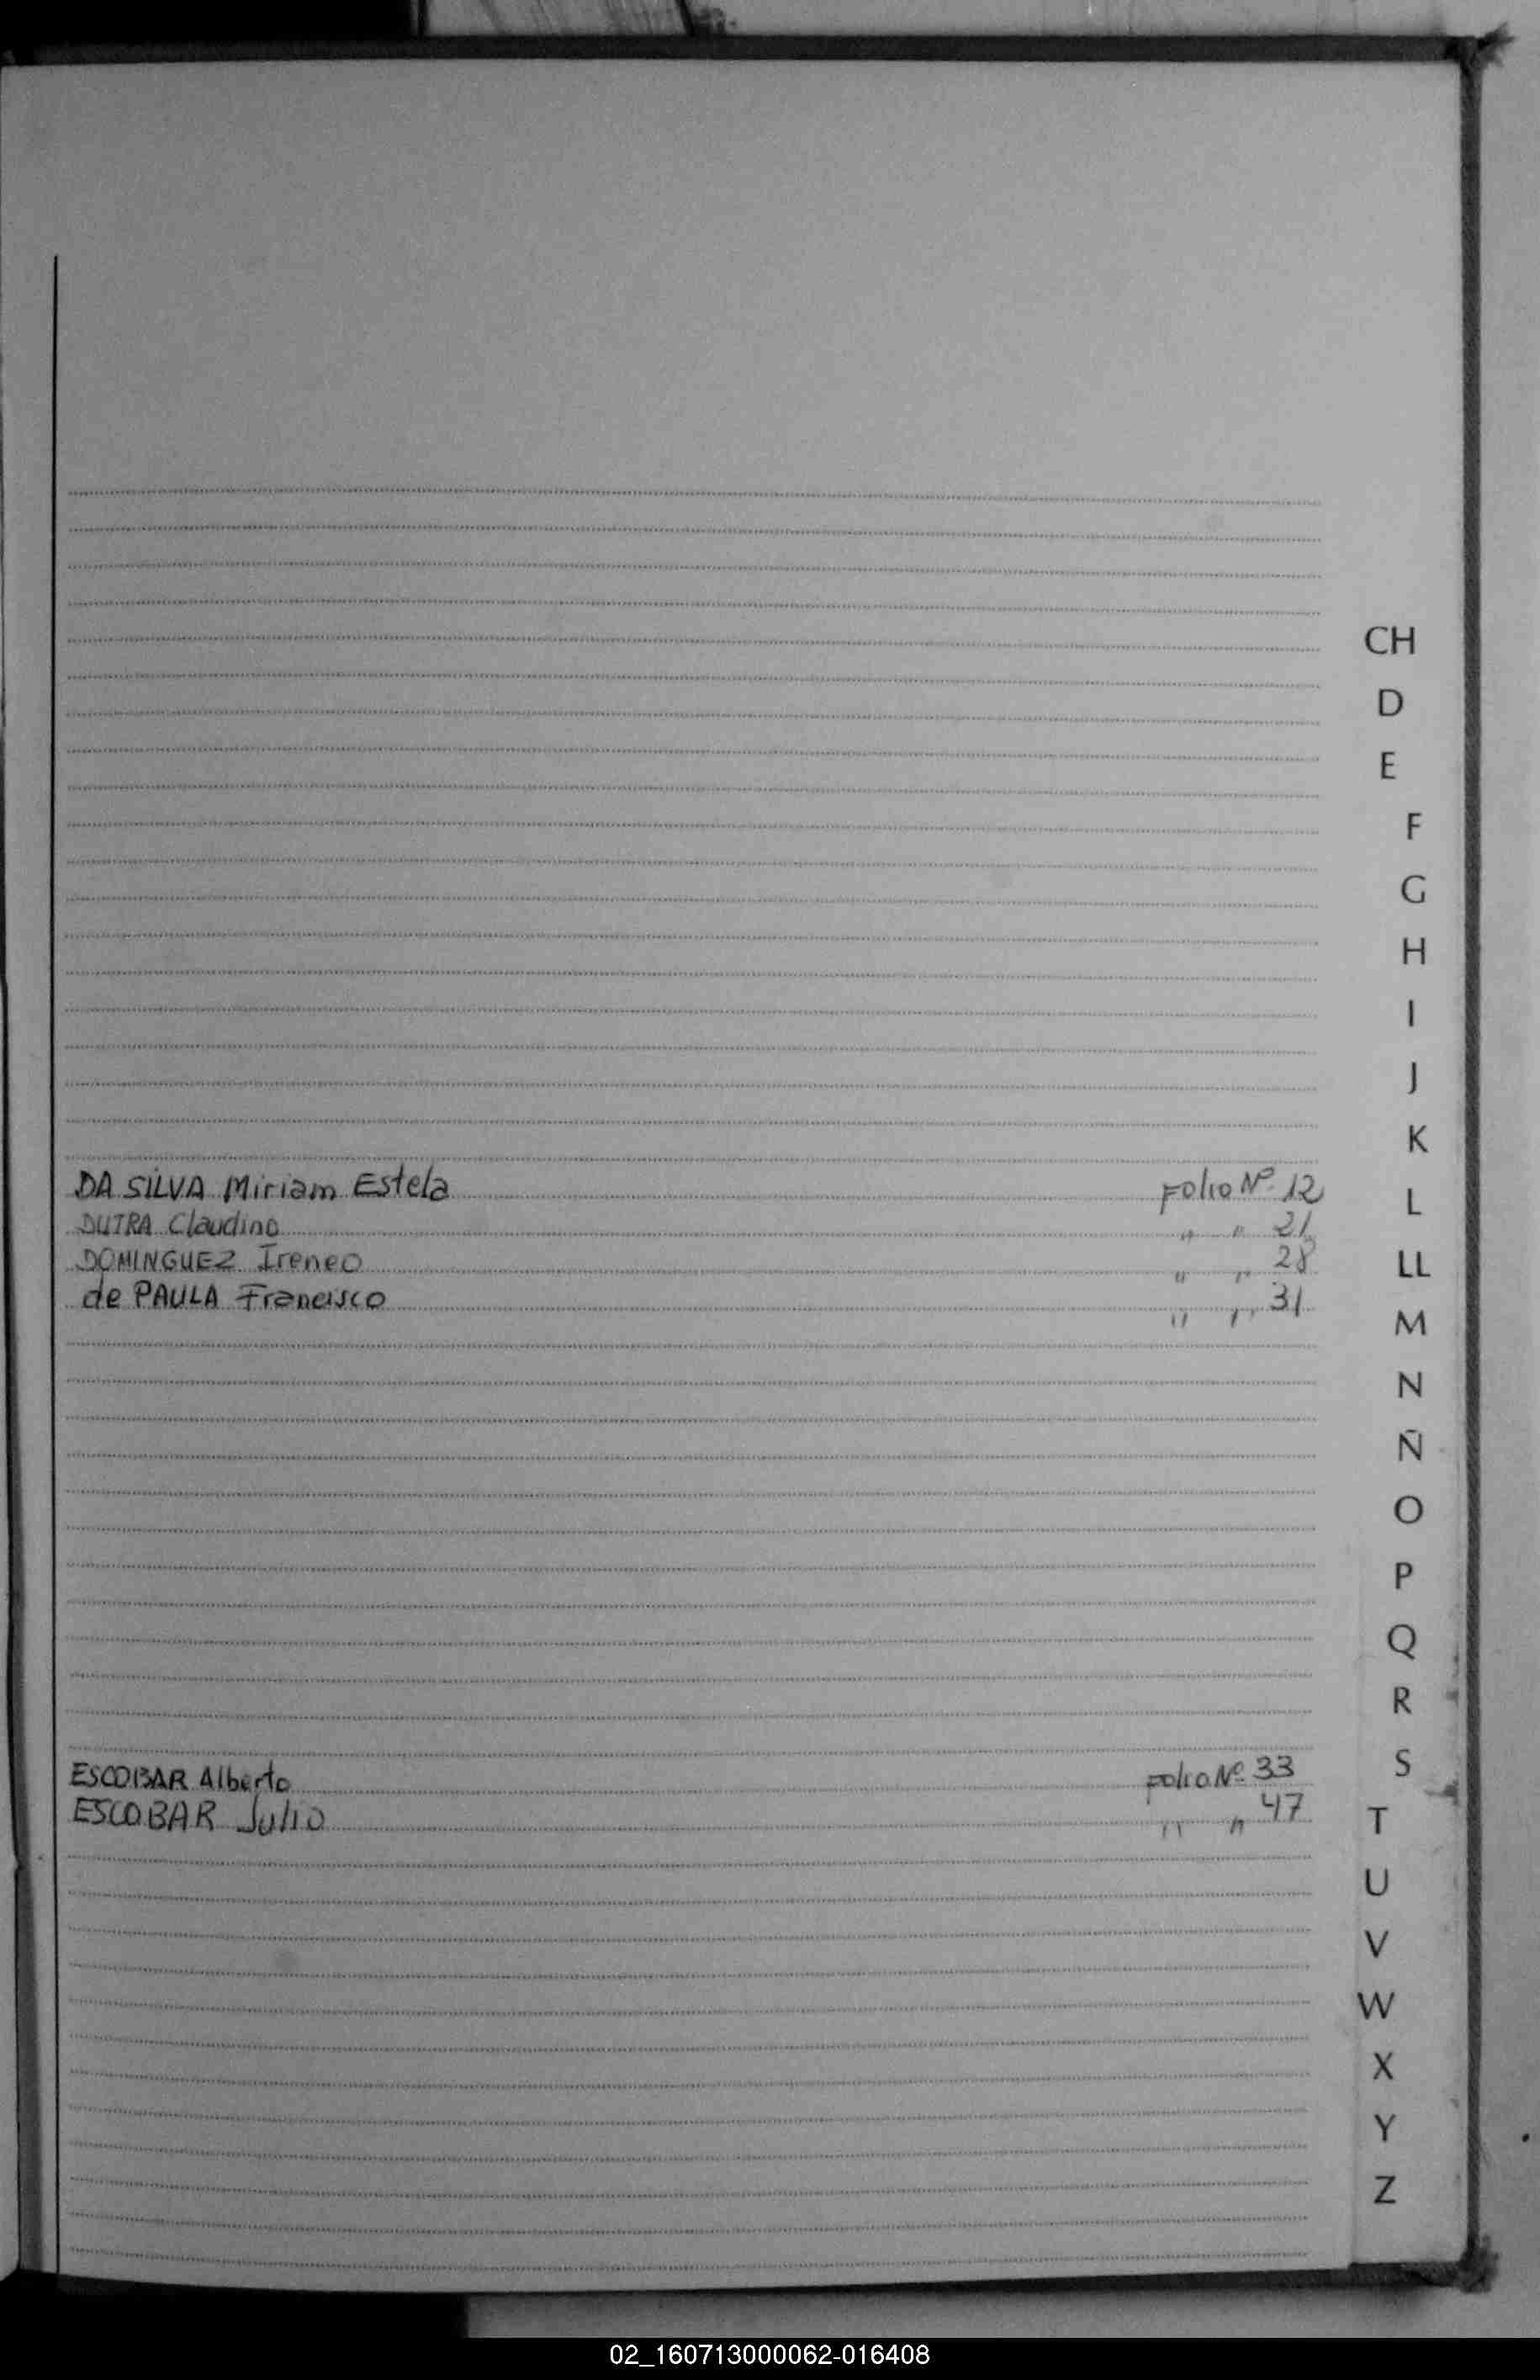 CH
D
E
F
G
H
I
J
K
DA SILVA Miriam Estela Folio Nº 12
L
DUTRA Claudino " " 21
DOMINGUEZ Ireneo " " 28
LL
de PAULA Francisco " " 31
M
N
Ñ
O
P
Q
R
S
ESCOBAR Alberto Folio Nº 33
ESCOBAR Julio " " 47
T
U
V
W
X
Y
Z
02_160713000062-016408